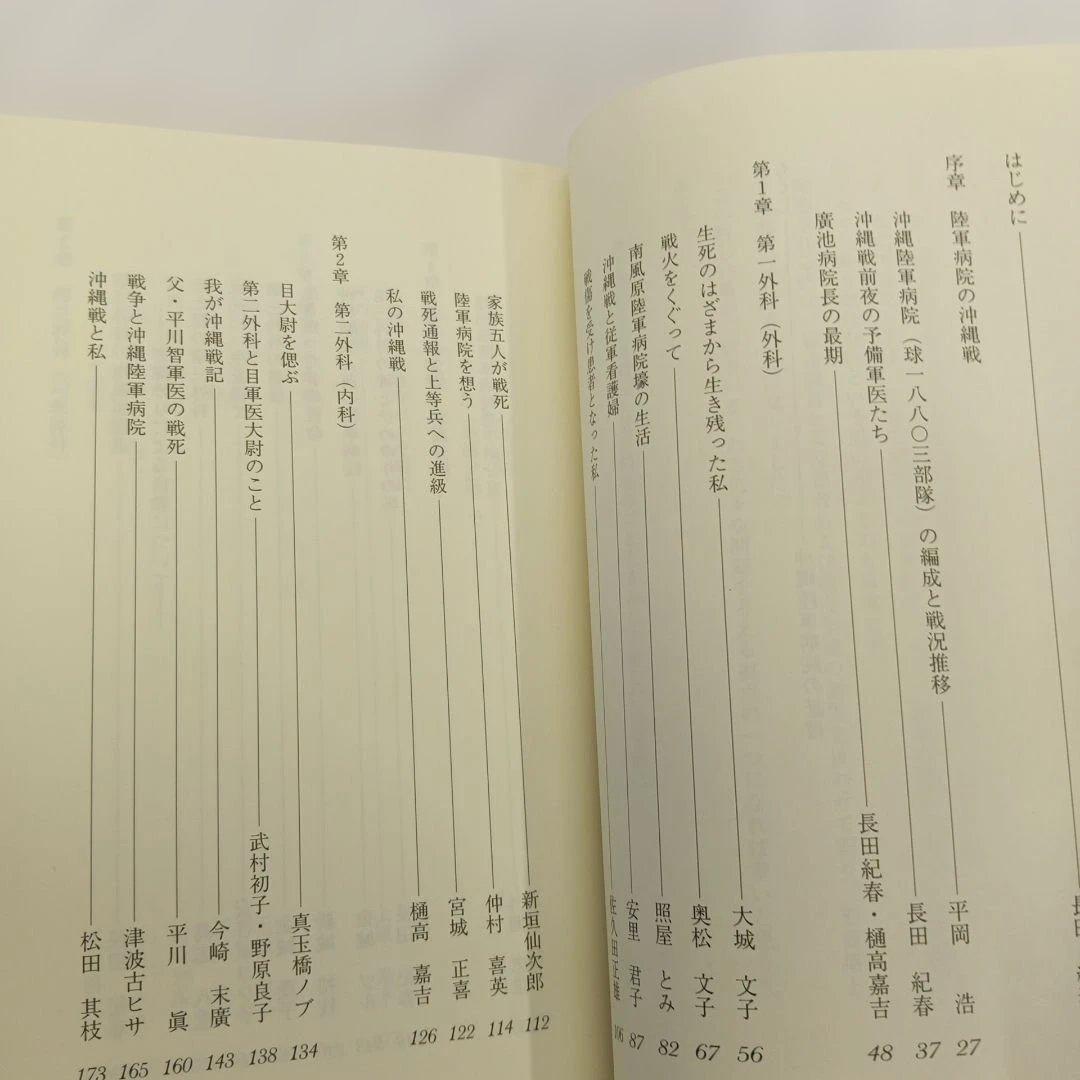 はじめに 長田
序章 陸軍病院の沖縄戦
沖縄陸軍病院（球一八八〇三部隊）の編成と戦況推移 平岡 浩 27
沖縄戦前夜の予備軍医たち 長田 紀春 37
廣池病院長の最期 長田紀春・樋高嘉吉 48
第1章 第一外科（外科）
生死のはざまから生き残った私 大城 文子 56
戦火をくぐって 奥松 文子 67
南風原陸軍病院壕の生活 照屋 とみ 82
沖縄戦と従軍看護婦 安里 君子 87
戦傷を受け患者となった私 佐久田正雄 106
家族五人が戦死 新垣仙次郎 112
陸軍病院を想う 仲村 喜英 114
戦死通報と上等兵への進級 宮城 正喜 122
私の沖縄戦 樋高 嘉吉 126
第2章 第二外科（内科）
目大尉を偲ぶ 真玉橋ノブ 134
第二外科と目軍医大尉のこと 武村初子・野原良子 138
我が沖縄戦記 今崎 末廣 143
父・平川智軍医の戦死 平川 眞 160
戦争と沖縄陸軍病院 津波古ヒサ 165
沖縄戦と私 松田 其枝 173